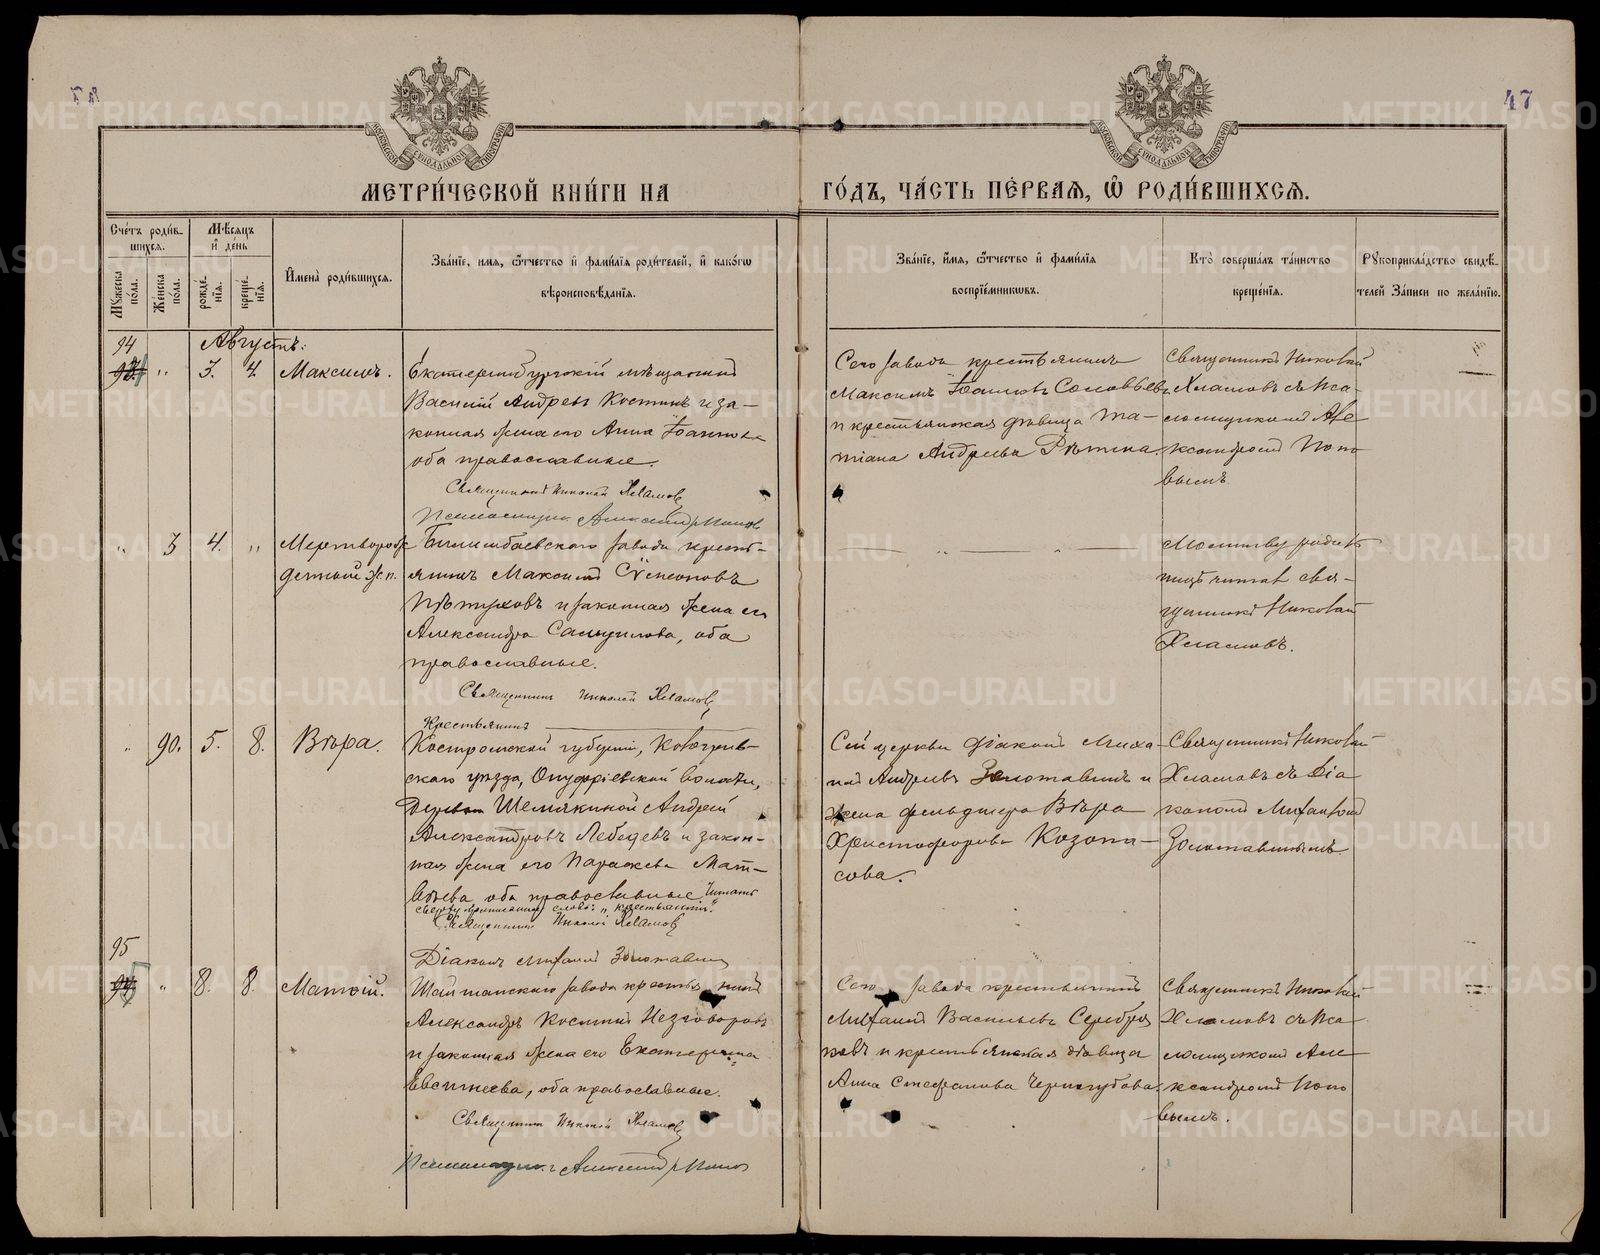 47
МОСКОВСКОЙ СѴНОДАЛЬНОЙ ТИПОГРАФІИ
МОСКОВСКОЙ СѴНОДАЛЬНОЙ ТИПОГРАФІИ
МЕТРИ́ЧЕСКОЙ КНИ́ГИ НА
ГО́ДЪ, ЧА́СТЬ ПЕ́РВАЯ, Ѽ РОДИ́ВШИХСЯ.
Счетъ роди́в-
шихся.
Мужеска пола.
Женска пола.
Мѣсяцъ
и день
рожде-
нія.
креще-
нія.
Имена роди́вшихся.
Зва́ніе, имя, ѻтчество и фами́лія роди́телей, и како́гѡ
вѣроисповѣ́данія.
Зва́ніе, и́мя, ѻтчество и фами́лія
воспріе́мникѡвъ.
Кто̀ соверша́лъ та́инство
креще́нія.
Рꙋкоприкла́дство свидѣ́-
телей за́писи по жела́нію.
Августъ:
94
" 3. 4. Максимъ.
Екатеринбургскій мѣщанинъ
Василій Андреевъ Костинъ и за-
конная жена его Анна Іоаннова
оба православные.
Священникъ Николай Хламовъ
Псаломщикъ Александръ Поповъ
Сего завода крестьянинъ
Максимъ Іоанновъ Соловьевъ
и крестьянская дѣвица Та-
тіана Андреева Рѣтина.
Священникъ Николай
Хламовъ съ Пса-
ломщикомъ Але
ксандромъ Попо
вымъ.
" 3 4. " Мертворож-
денный ж. п.
Билимбаевскаго завода кресть-
янинъ Максимъ Сѵмеоновъ
Пѣтуховъ и законная жена его
Александра Самуилова, оба
православные.
Священникъ Николай Хламовъ
Молитву родиль
ницѣ читалъ свя-
щенникъ Николай
Хламовъ.
" 90. 5. 8. Вѣра.
Крестьянинъ
Костромской губерніи, Кологрив-
скаго уѣзда, Онуфріевской волости,
Деревни Шемякиной Андрей
Александровъ Лебедевъ и закон-
ная жена его Параскева Мат-
вѣева, оба православные. Читать
сверху приписанное слово: „крестьянинъ".
Священникъ Николай Хламовъ
Діаконъ Михаилъ Золотавинъ
Сей церкви діаконъ Миха
илъ Андреевъ Золотавинъ и
жена фельдшера Вѣра
Христофорова Козопа-
сова.
Священникъ Николай
Хламовъ съ Діа
кономъ Михаиломъ
Золотавинымъ.
95
" 8. 8. Матѳій.
Шайтанскаго завода крестьянинъ
Александръ Косминъ Незговоровъ
и законная жена его Екатерина
Евсигнеева, оба православные.
Священникъ Николай Хламовъ
Псаломщикъ Александръ Поповъ
Сего завода крестьянинъ
Михаилъ Васильевъ Серебря
ковъ и крестьянская дѣвица
Анна Стефанова Черногубова.
Священникъ Николай
Хламовъ съ Пса
ломщикомъ Але
ксандромъ Попо
вымъ.
METRIKI.GASO-URAL.RU